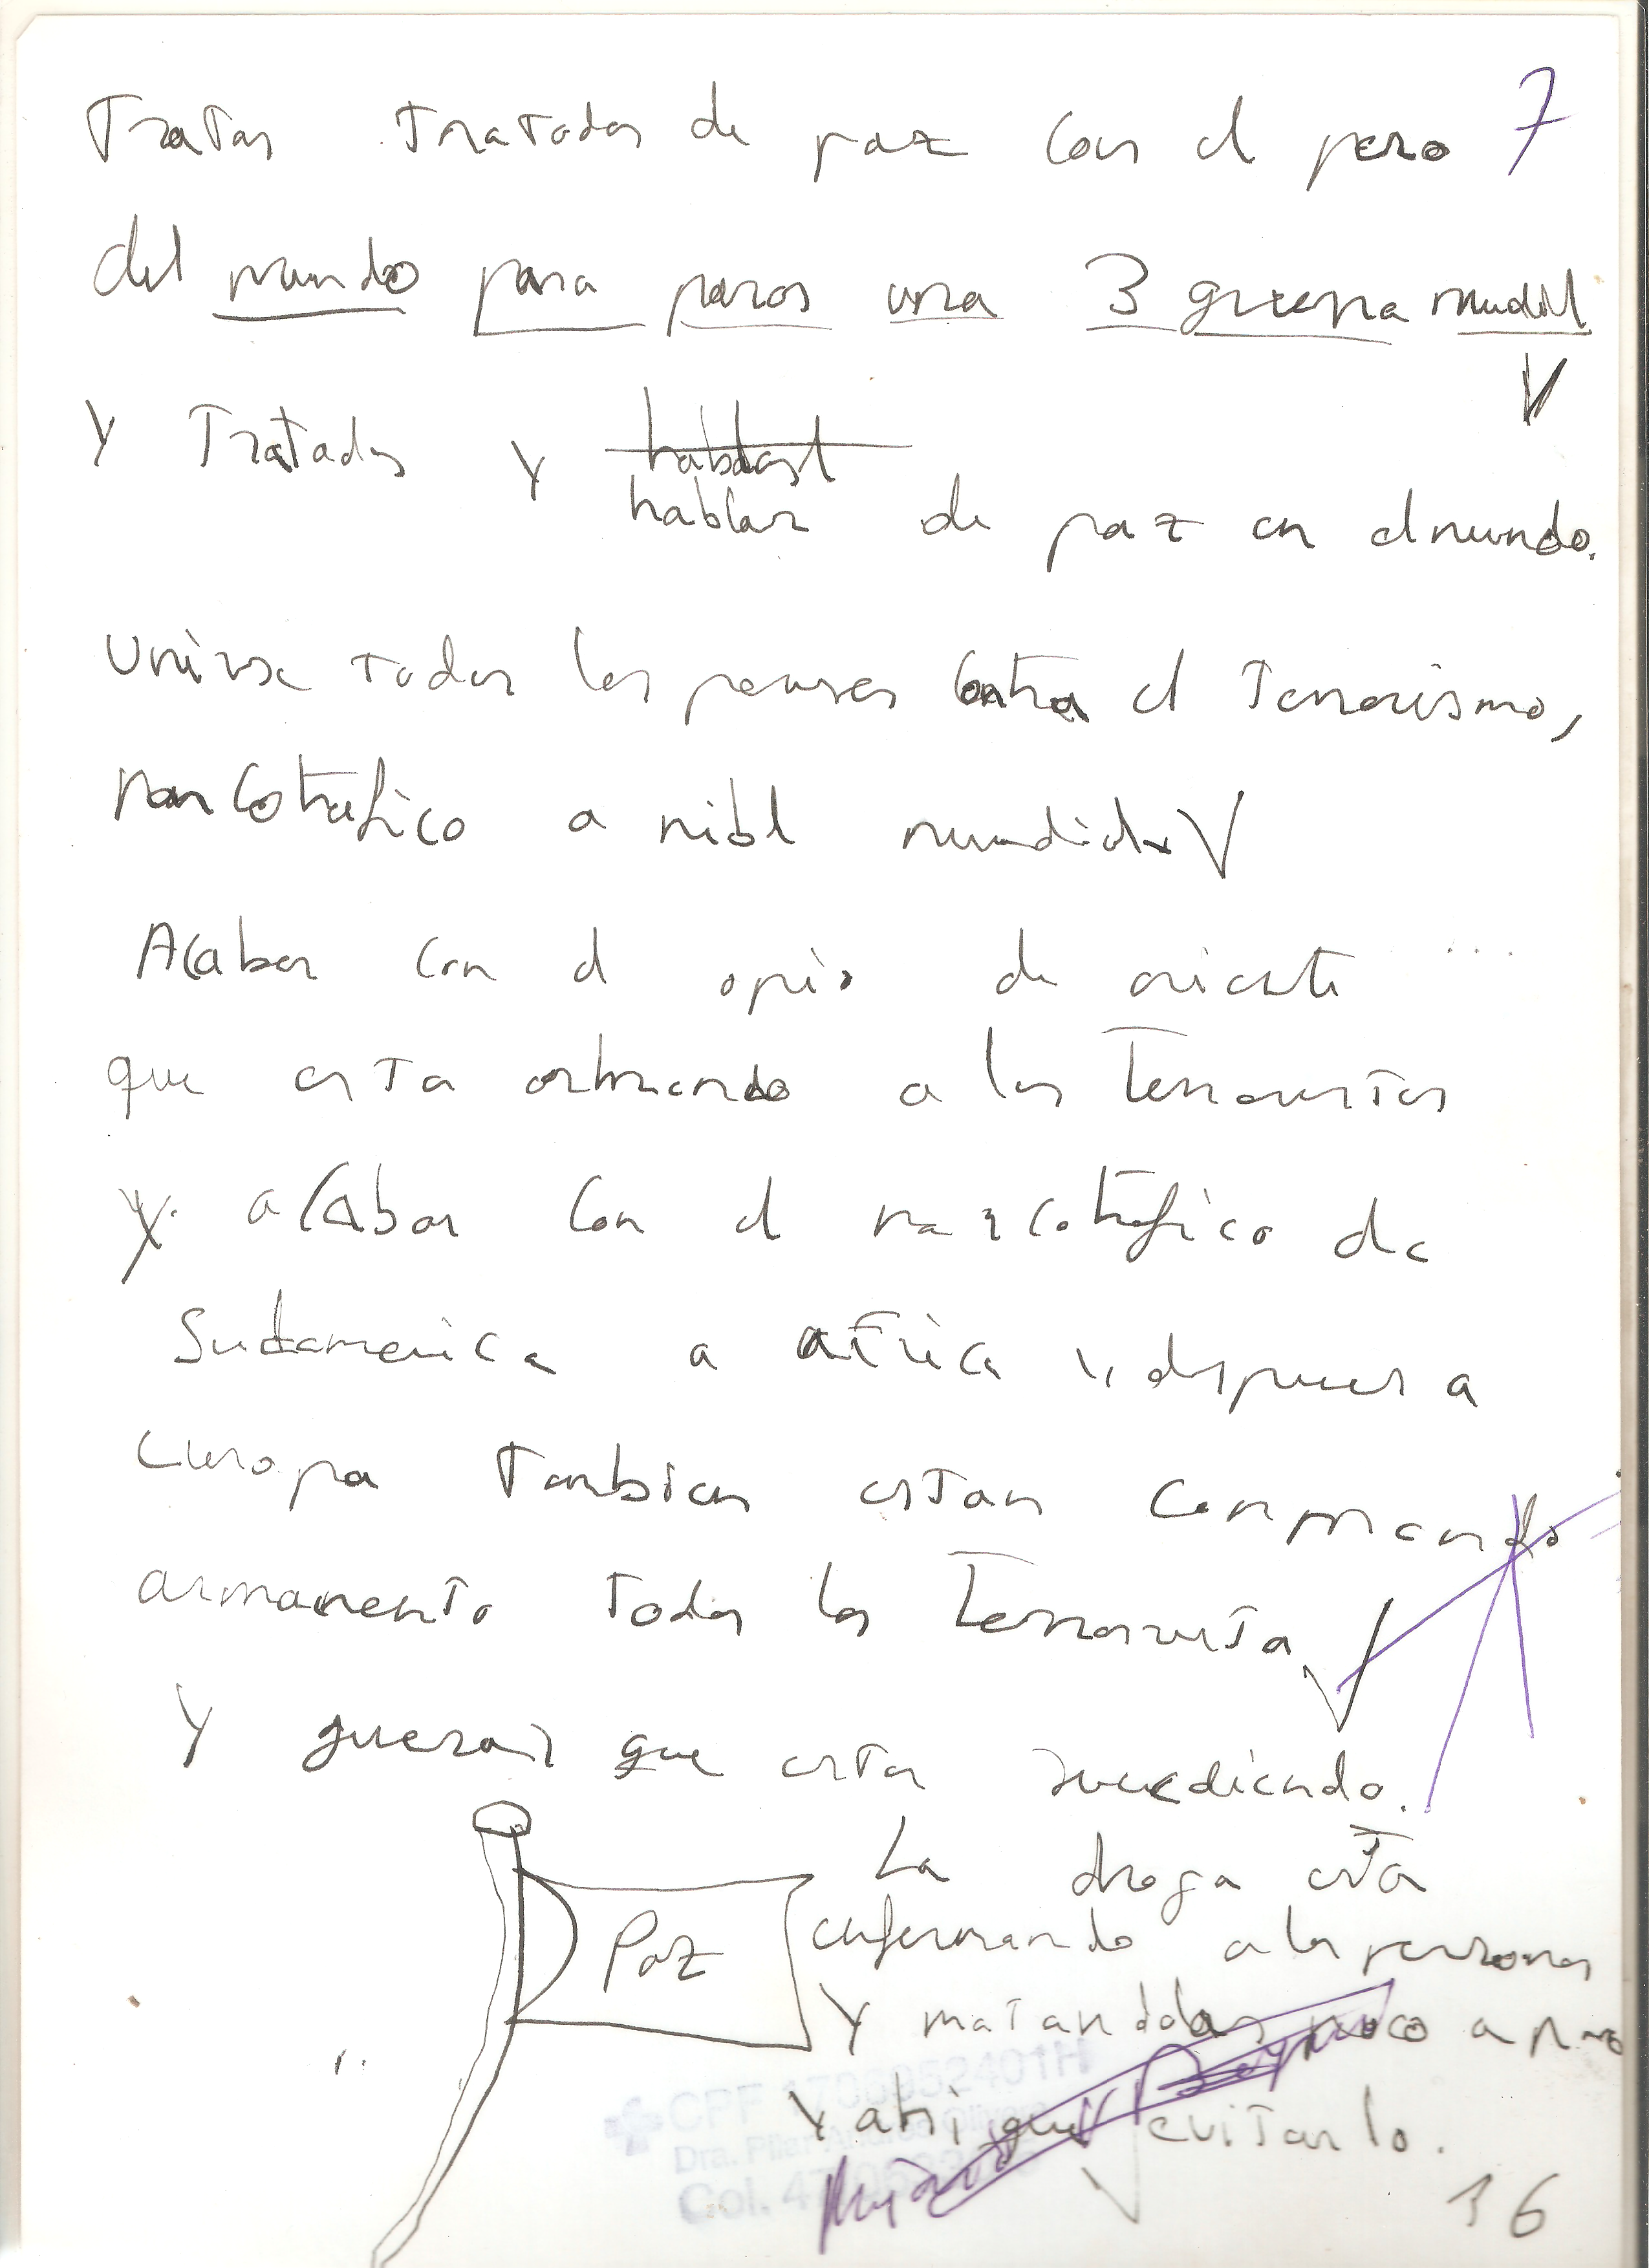 Tratar Tratados de paz con el pero 7
del mundo para paros una 3 guerra mudial
Y Tratados y hablar de paz en el mundo.
Unirse todos los paises contra el Terrorismo,
narcotrafico a nibel mundial
Acabar con el opio de oriente ...
que esta a los Terroristas
y acabar con el narcotrafico de
Sudamerica a africa y despues a
Europa Tambien estan comprando
armamento todos los Terrorista
Y guerras que esta sucediendo.
La droga esta
Paz
enfermando a las personas
Y matandolas poco a poco
Y ahi que evitarlo.
CPF 1796952401H
Dra. Pilar
Col. 47
16